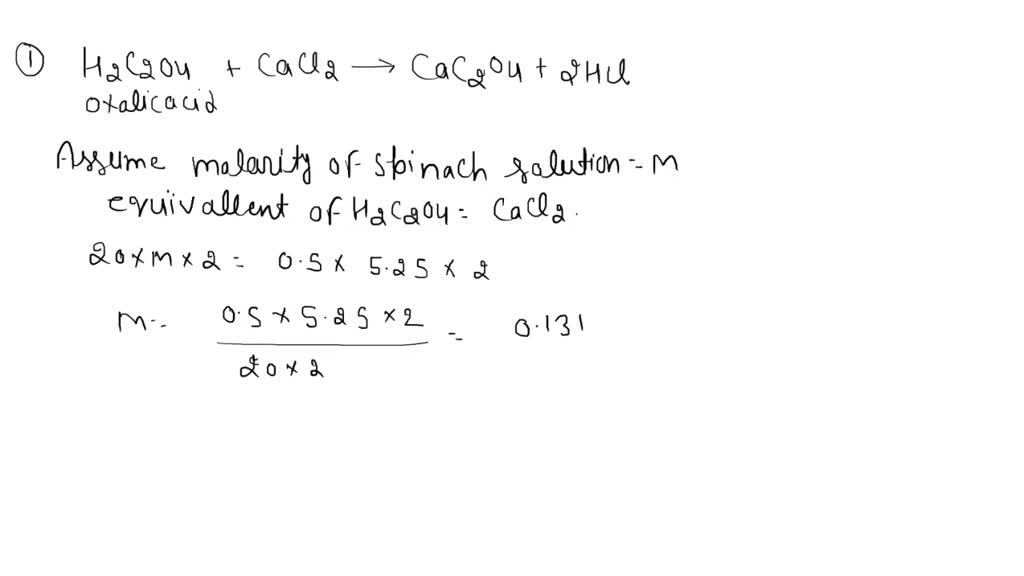 ① H2C2O4 + CaCl2 → CaC2O4 + 2HCl
oxalicacid
Assume molarity of spinach solution = M
equivallent of H2C2O4 = CaCl2.
20 × M × 2 = 0.5 × 5.25 × 2
M = 0.5 × 5.25 × 2 / 20 × 2 = 0.131